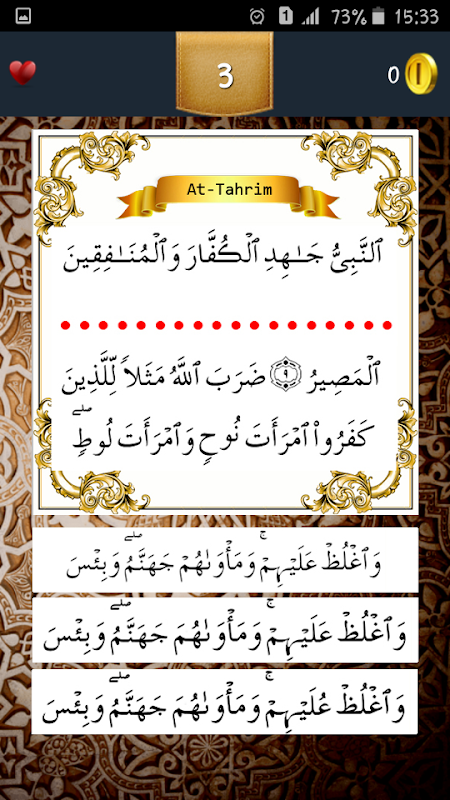 15:33 73% 1
0 3
At-Tahrim
ٱلنَّبِىُّ جَـٰهِدِ ٱلْكُفَّارَ وَٱلْمُنَـٰفِقِينَ
ٱلْمَصِيرُ ٩ ضَرَبَ ٱللَّهُ مَثَلًا لِّلَّذِينَ
كَفَرُوا۟ ٱمْرَأَتَ نُوحٍ وَٱمْرَأَتَ لُوطٍۖ
وَٱغْلُظْ عَلَيْهِمْۚ وَمَأْوَىٰهُمْ جَهَنَّمُۖ وَبِئْسَ
وَٱغْلُظْ عَلَيْهِمْۚ وَمَأْوَىٰهُمَ جَهَنَّمُۖ وَبِئْسَ
وَٱغْلُظْ عُلَيْهِمْۚ وَمَأْوَىٰهُمْ جَهَنَّمُۖ وَبِئْسَ